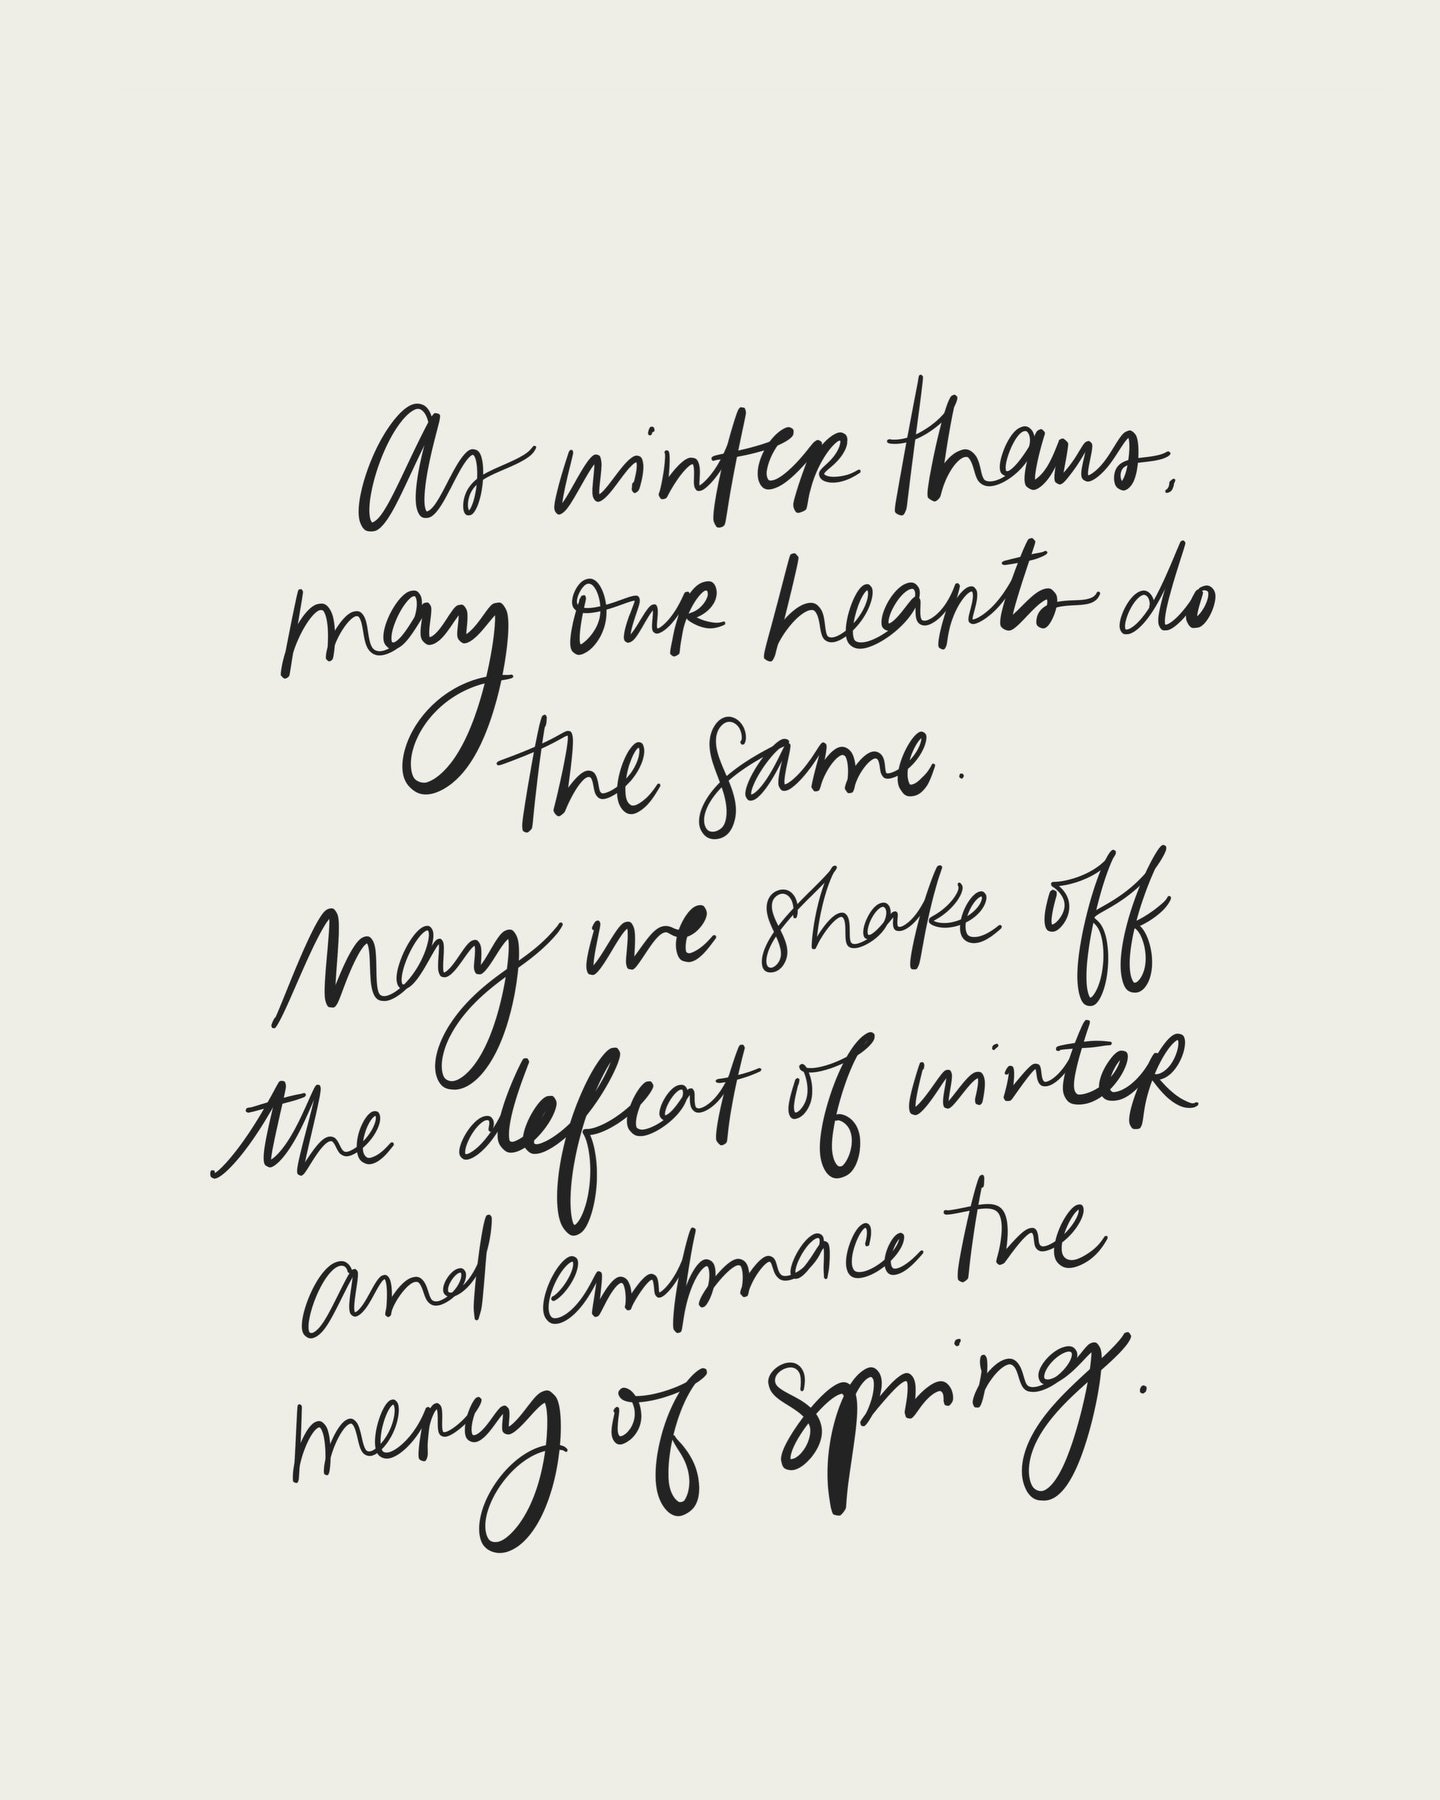 As winter thaws,
may our hearts do
the same.
May we shake off
the defeat of winter
and embrace the
mercy of spring.